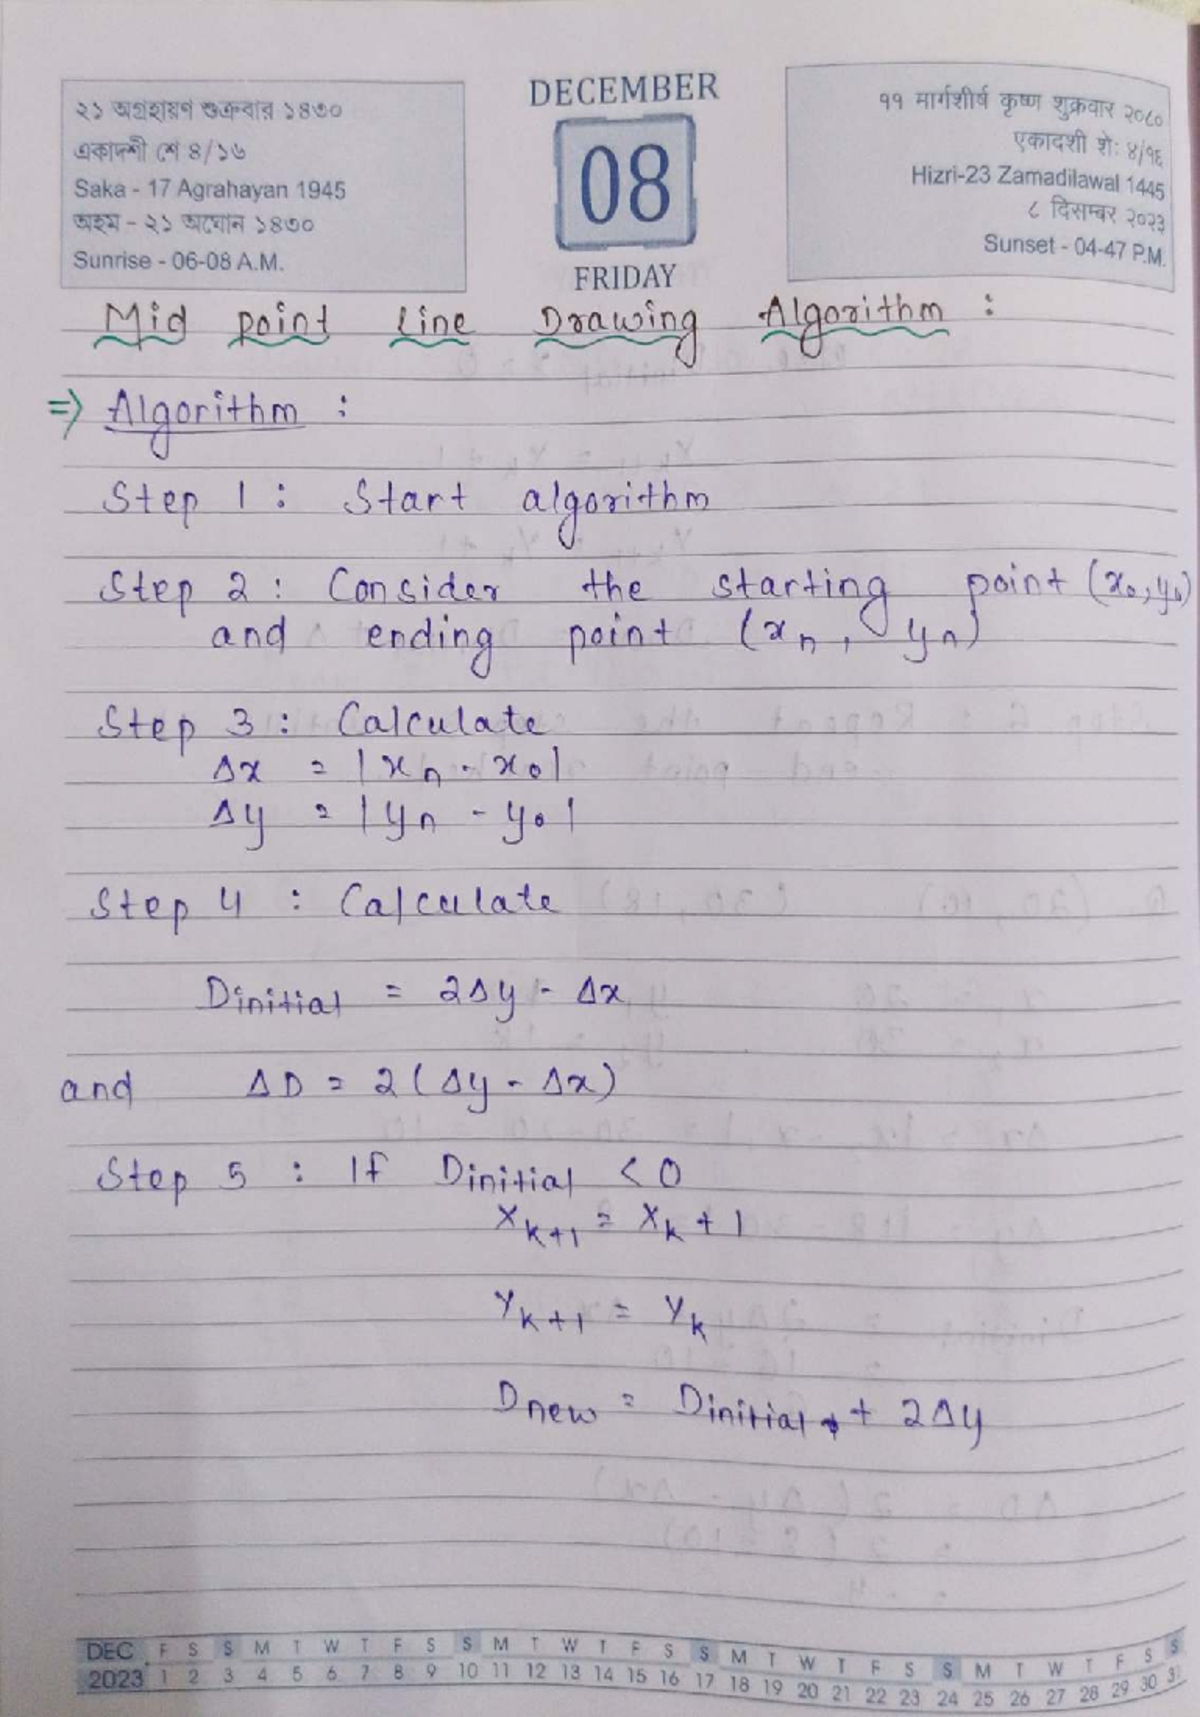 ২১ অগ্রহায়ণ শুক্রবার ১৪৩০
একাদশী শে ৪/১৬
Saka - 17 Agrahayan 1945
অহম - ২১ অঘোন ১৪৩০
Sunrise - 06-08 A.M.
DECEMBER
08
FRIDAY
११ मार्गशीर्ष कृष्ण शुक्रवार २०८०
एकादशी शे: ४/१६
Hizri-23 Zamadilawal 1445
८ दिसम्बर २०२३
Sunset - 04-47 P.M.
Mid point Line Drawing Algorithm :
=> Algorithm :
Step 1 : Start algorithm
Step 2 : Consider the starting point (x₀, y₀)
and ending point (xₙ, yₙ)
Step 3 : Calculate
Δx = |xₙ - x₀|
Δy = |yₙ - y₀|
Step 4 : Calculate
Dinitial = 2Δy - Δx
and ΔD = 2(Δy - Δx)
Step 5 : If Dinitial < 0
Xₖ₊₁ = Xₖ + 1
Yₖ₊₁ = Yₖ
Dnew = Dinitial + 2Δy
DEC F S S M T W T F S S M T W T F S S M T W T F S S M T W T F S S
2023 1 2 3 4 5 6 7 8 9 10 11 12 13 14 15 16 17 18 19 20 21 22 23 24 25 26 27 28 29 30 31